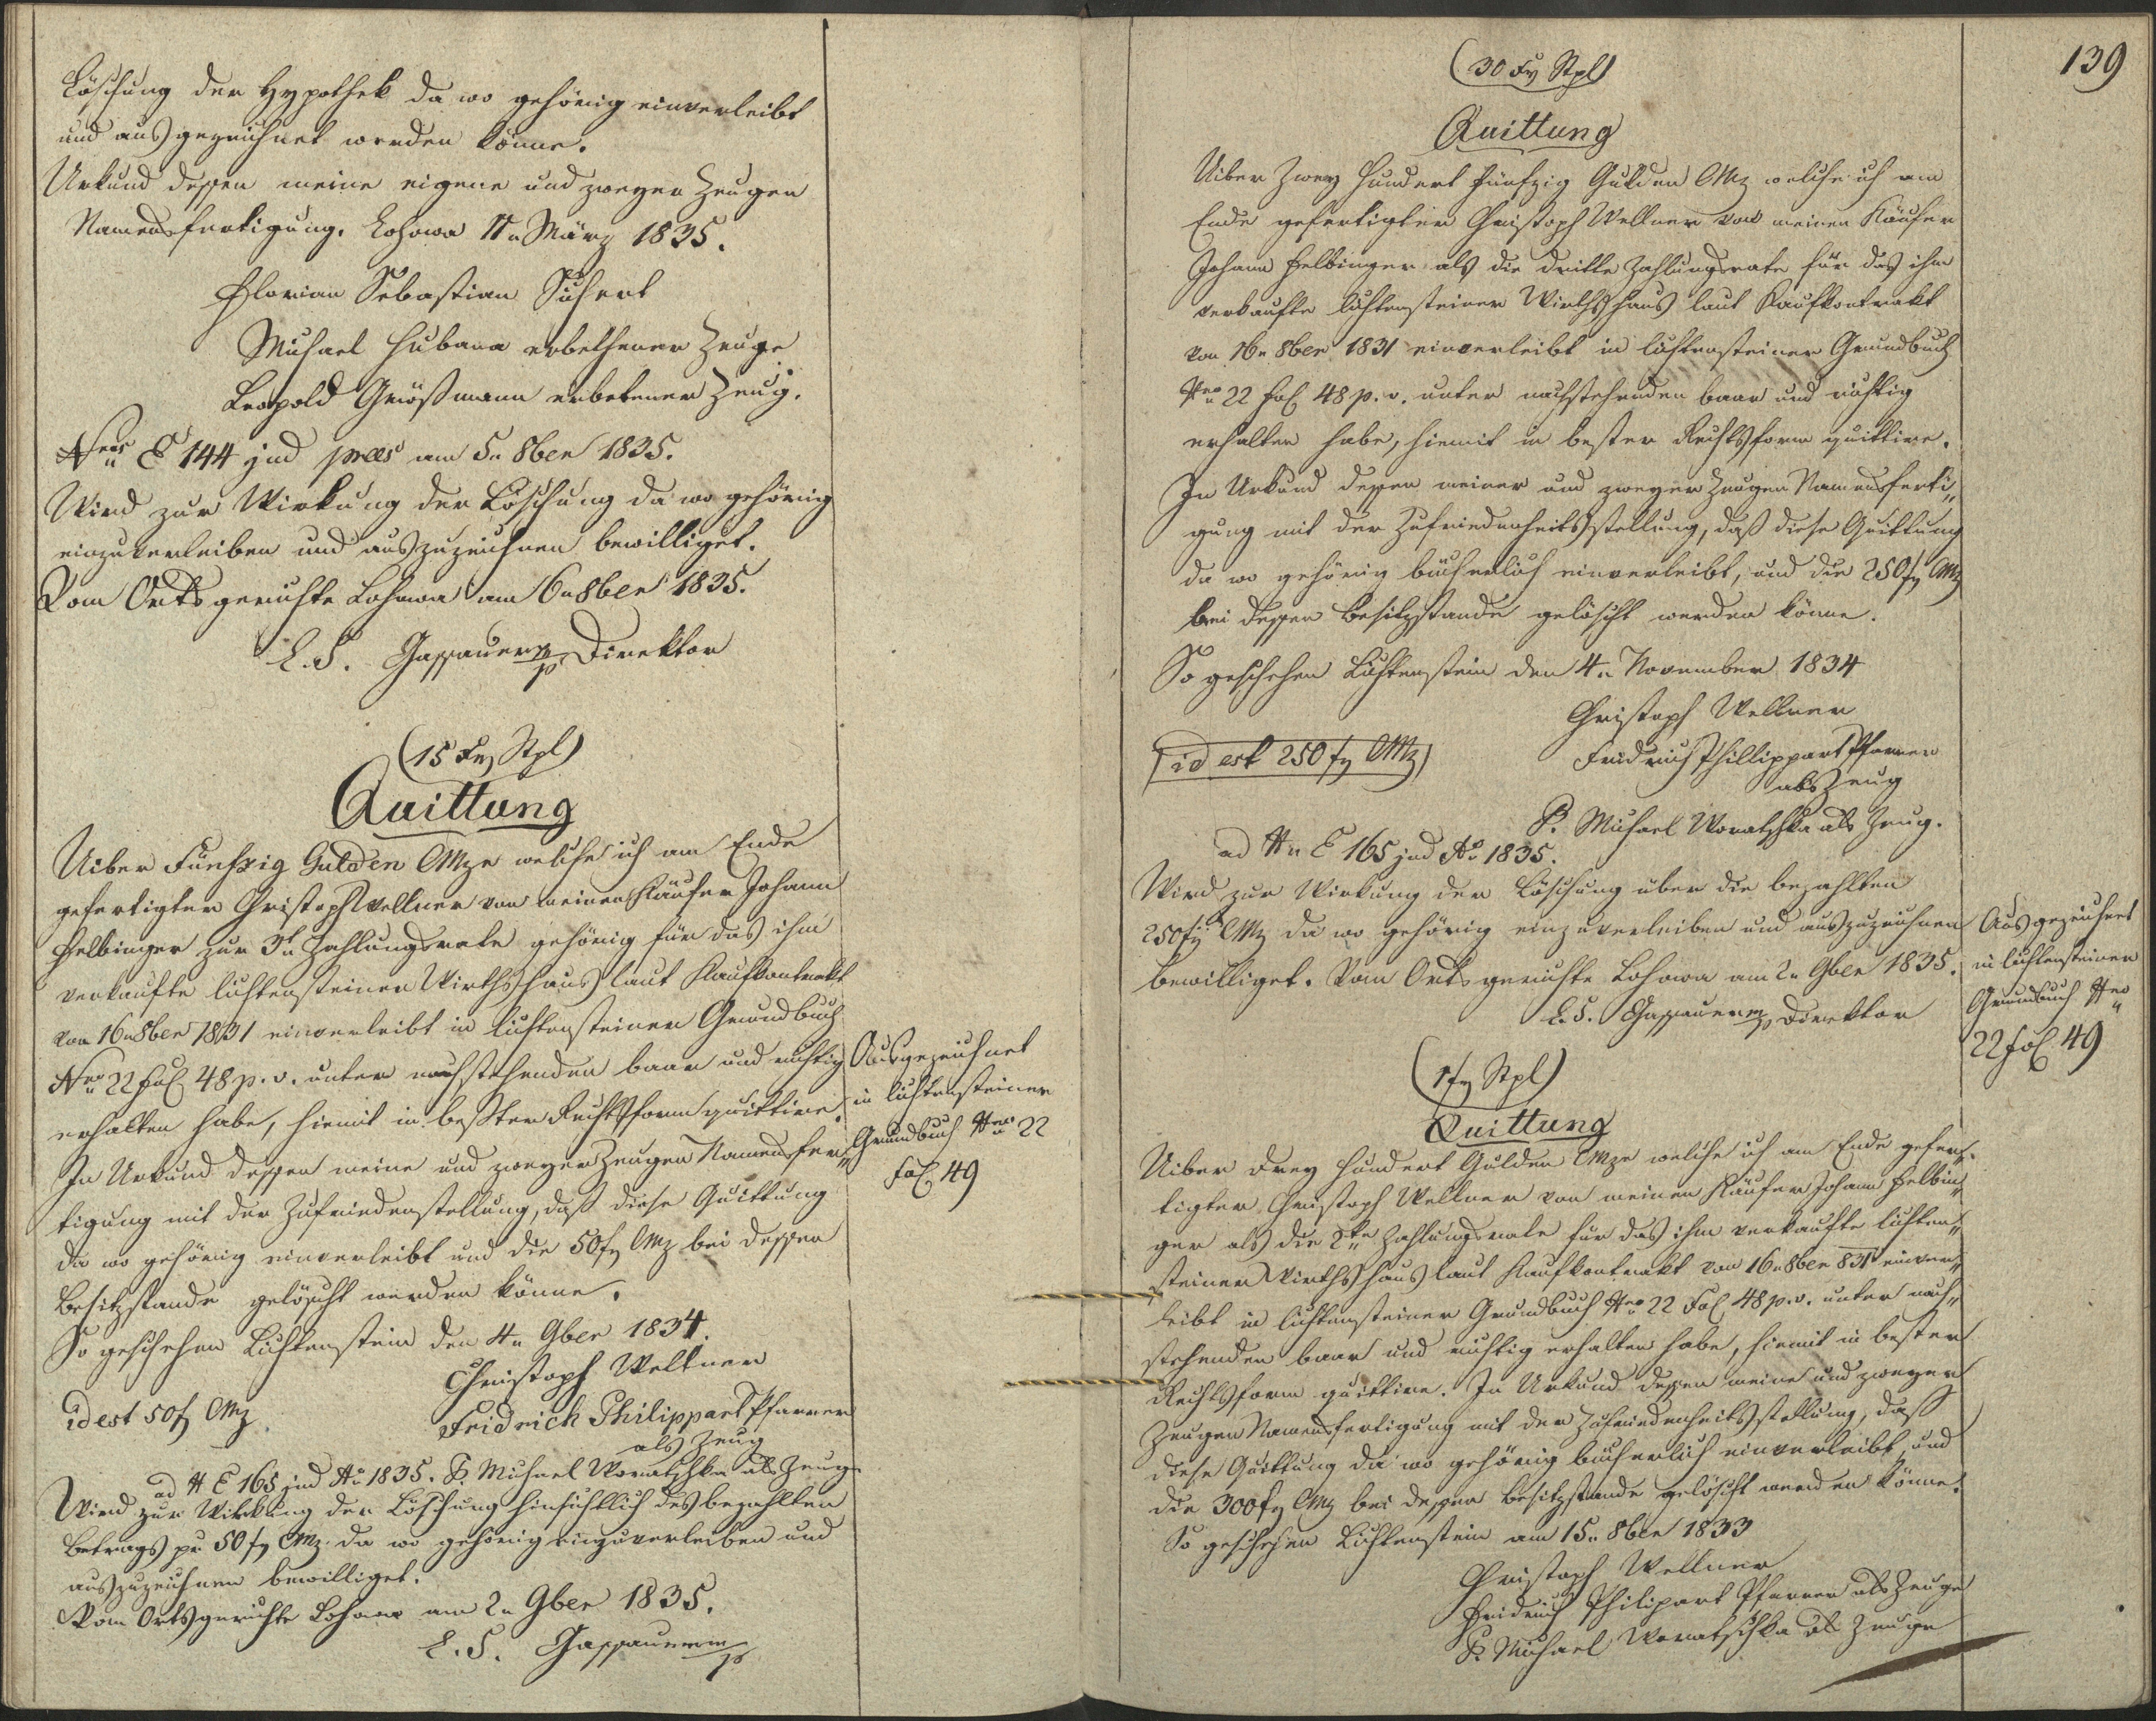 Löschung der Hypothek da wo gehörig einverleibt
und ausgezeichnet werden könne.
Urkund dessen meine eigene und zweyer Zeugen
Namensfertigung. Lohowa März 1835.
Florian Sebastian
Michael Hubana erbethener Zeuge
Leopold Grössmann erbetener Zeug.
Nro E 144 jud praes am 5n 8ber 1835.
Wird zur Wirkung der Löschung da wo gehörig
einzuverleiben und auszuzeichnen bewilliget.
Vom Ortsgerichte Lohowa am 6n 8ber 1835.
L. S. Gassauer mp Direktor
(15 Xr Stpl)
Quittung
Uiber Fünfzig Gulden CMze welche ich am Ende
gefertigter Christoph Wellner von meinen Käufer Johann
Helbinger zur 3t Zahlungsrate gehörig für das ihm
verkaufte lichtensteiner Wirthshaus laut Kaufkontrakt
von 16n 8ber 1831 einverleibt in lichtensteiner Grundbuch
Nro 22 Fol 48 p. v. unter nachstehenden baar und richtig
erhalten habe, hiemit in bester Rechtsform quittire.
In Urkund dessen meine und zweyer Zeugen Namensfer„
tigung mit der Zufriedenstellung, daß diese Quittung
da wo gehörig einverleibt und die 50 f CMz bei dessen
Besitzstande gelöscht werden könne.
So geschehen Lichtenstein den 4n 9ber 1834.
Christoph Wellner
id est 50 f CMz
Fridrich Philippart Pfarrer
als Zeug
ad N E 165 jud Ao 1835. P. Michael Woratschka als Zeug
Wird zur Wirkung der Löschung hinsichtlich des bezahlten
Betrags pr 50 f CMz da wo gehörig einzuverleiben und
auszuzeichnen bewilliget.
Vom Ortsgerichte Lohowa am 2n 9ber 1835.
L. S. Gassauer mp
Ausgezeichnet
in lichtensteiner
Grundbuch Nro 22
Fol 49
139
(30 Xr Stpl)
Quittung
Uiber Zwey Hundert Fünfzig Gulden CMz welche ich am
Ende gefertigter Christoph Wellner von meinen Käufer
Johann Helbinger als die dritte Zahlungsrate für das ihm
verkaufte lichtensteiner Wirthshaus laut Kaufkontrakt
von 16n 8ber 1831 einverleibt in lichtensteiner Grundbuch
Nro 22 Fol 48 p. v. unter nachstehenden baar und richtig
erhalten habe, hiemit in bester Rechtsform quittire.
In Urkund dessen meiner und zweyer Zeugen Namensferti„
gung mit der Zufriedenheitsstellung, daß diese Quittung
da wo gehörig bücherlich einverleibt, und die 250 f CMz
bei dessen Besitzstande gelöscht werden könne.
So geschehen Lichtenstein den 4n November 1834
Christoph Wellner
id est 250 f CMz
Fridrich Phillippart Pfarrer
als Zeug
P. Michael Woratschka als Zeug.
ad Nn E 165 jud Ao 1835.
Wird zur Wirkung der Löschung über die bezahlten
250 f CMz da wo gehörig einzuverleiben und auszuzeichnen
bewilliget. Vom Ortsgerichte Lohowa am 2n 9ber 1835.
L. S. Gassauer mp Direktor
Ausgezeichnet
in lichtensteiner
Grundbuch Nro
22 Fol 49
(1 f Stpl)
Quittung
Uiber Drey Hundert Gulden CMze welche ich am Ende gefer„
tigter Christoph Wellner von meinen Käufer Johann Helbin„
ger als die 2te Zahlungsrate für das ihm verkaufte lichten„
steiner Wirthshaus laut Kaufkontrakt von 16n 8ber 831 einver„
leibt in lichtensteiner Grundbuch Nro 22 Fol 48 p. v. unter nach„
stehenden baar und richtig erhalten habe, hiemit in bester
Rechtsform quittire. In Urkund dessen meine und zweyer
Zeugen Namensfertigung mit der Zufriedenheitsstellung, daß
diese Quittung da wo gehörig bücherlich einverleibt, und
die 300 f CMz bei dessen Besitzstande gelöscht werden könne.
So geschehen Lichtenstein am 15n 8ber 1833
Christoph Wellner
Fridrich Philipart Pfarrer als Zeuge
P. Michael Woratschka als Zeuge